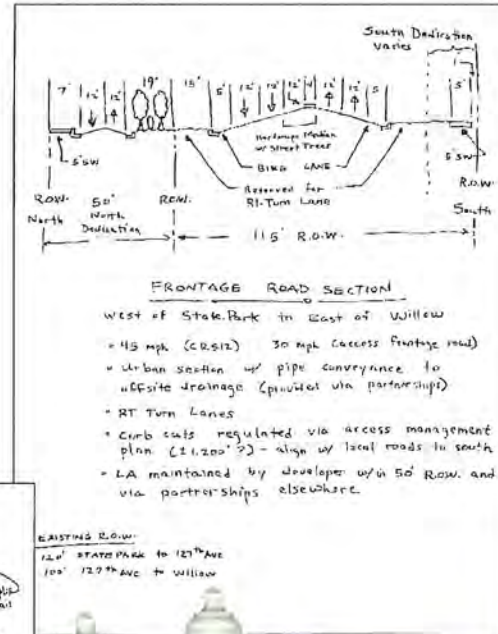 South Dedication
varies
7' 12' 12' 19' 15' 5' 12' 12' 12' 4' 12' 12' 5 5'
Hardscape Median
w/ Street Trees
5' SW
BIKE LANE
5' SW
Reserved for
Rt-Turn Lane
R.O.W.
North
50'
North
Dedication
R.O.W.
115' R.O.W.
R.O.W.
South
FRONTAGE ROAD SECTION
West of State Park to East of Willow
• 45 mph (CR512) 30 mph (access frontage road)
• Urban section w/ pipe conveyance to
offsite drainage (provided via partnerships)
• RT Turn Lanes
• Curb cuts regulated via access management
plan (±1,200' ?) - align w/ local roads to south
• LA maintained by developer w/in 50' R.O.W. and
via partnerships elsewhere
EXISTING R.O.W.
120' STATE PARK to 127th AVE
100' 127th AVE to Willow